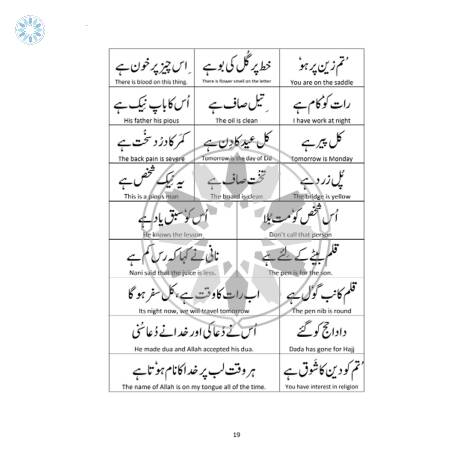 تُم زین پر ہو
خط پر گُل کی بو ہے
اِس چیز پر خون ہے
You are on the saddle
There is flower smell on the letter
There is blood on this thing.
رات کو کام ہے
تیل صاف ہے
اُس کا باپ نیک ہے
I have work at night
The oil is clean
His father his pious
کل پیر ہے
کل عید کا دن ہے
کمر کا درد سخت ہے
Tomorrow is Monday
Tomorrow is the day of Eid
The back pain is severe
پُل زرد ہے
تخت صاف ہے
یہ نیک شخص ہے
The bridge is yellow
The board is clean
This is a pious man
اُس شخص کو مت بلا
اُس کو سبق یاد ہے
Don't call that person
He knows the lesson
قلم بیٹے کے لئے ہے
نانی نے کہا کہ رس کم ہے
The pen is for the son.
Nani said that the juice is less.
قلم کا نب گول ہے
اب رات کا وقت ہے، کل سفر ہو گا
The pen nib is round
Its night now, we will travel tomorrow
دادا حج کو گئے
اُس نے دُعا کی اور خدا نے دُعا سُنی
Dada has gone for Hajj
He made dua and Allah accepted his dua.
تُم کو دین کا شوق ہے
ہر وقت لب پر خدا کا نام ہوتا ہے
You have interest in religion
The name of Allah is on my tongue all of the time.
19